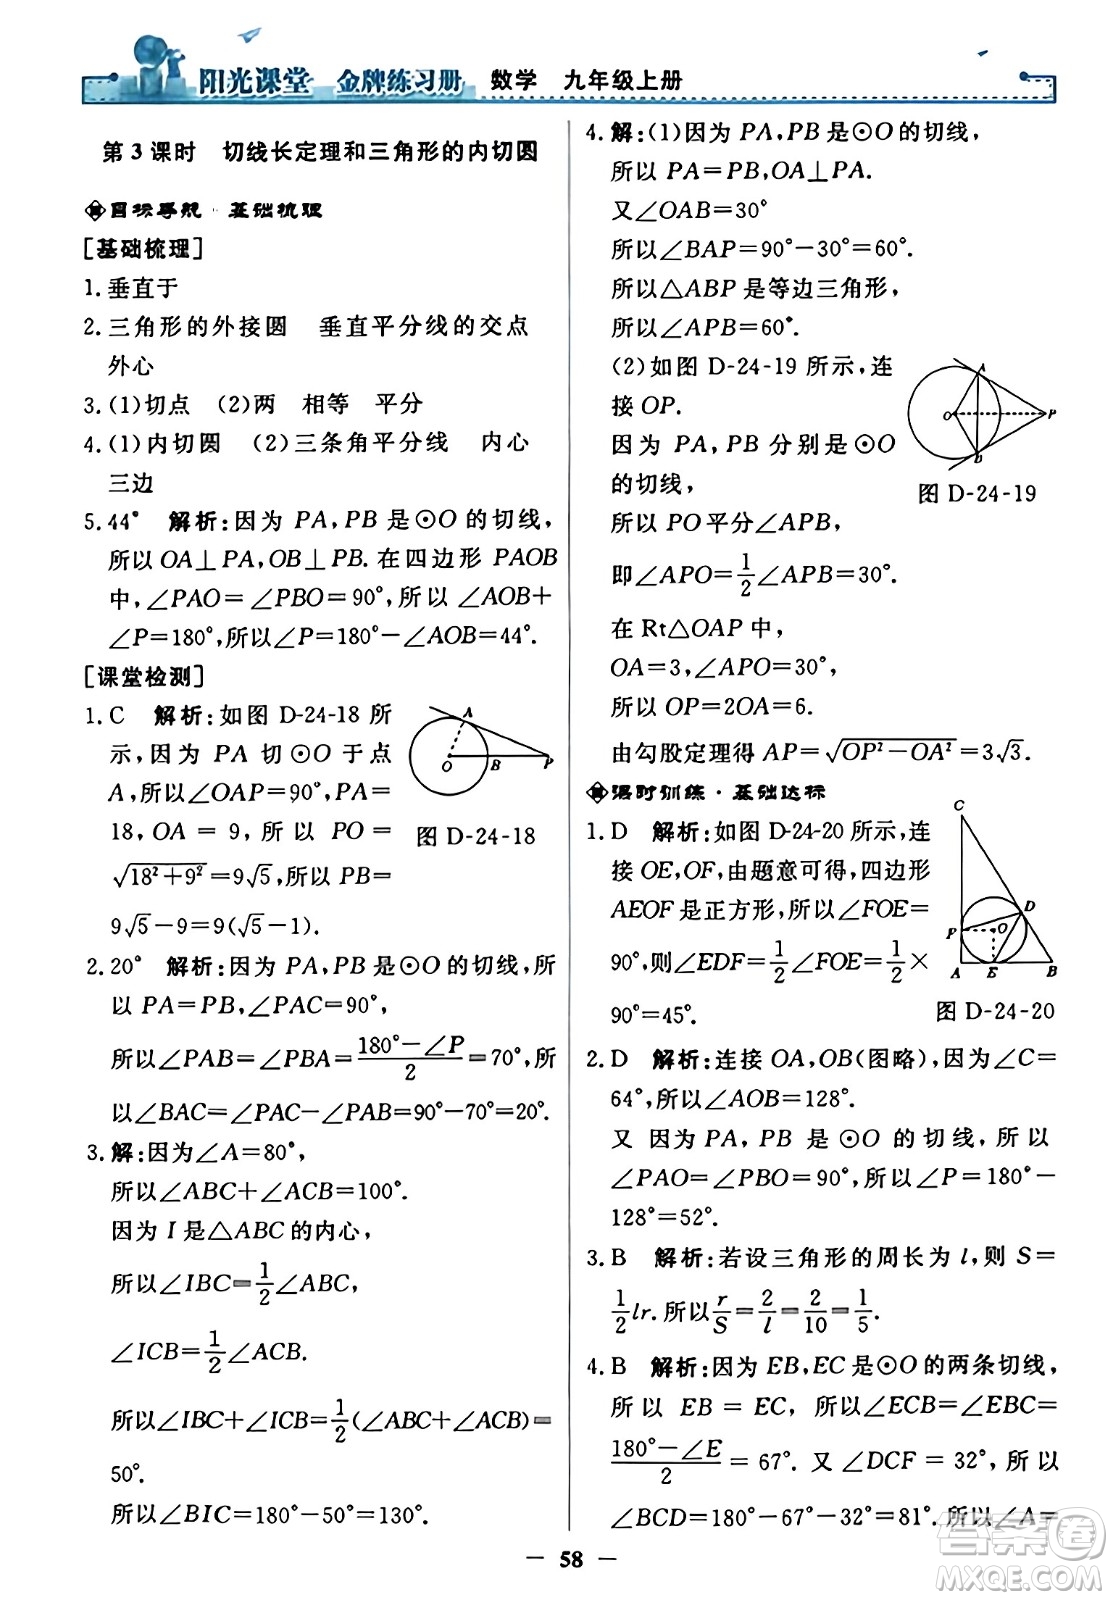 阳光课堂 金牌练习册 数学 九年级上册
第3课时 切线长定理和三角形的内切圆
目标导航·基础梳理
[基础梳理]
1.垂直于
2.三角形的外接圆 垂直平分线的交点
外心
3.(1)切点 (2)两 相等 平分
4.(1)内切圆 (2)三条角平分线 内心
三边
5.44° 解析:因为 PA,PB 是⊙O的切线,
所以OA⊥PA,OB⊥PB.在四边形 PAOB
中,∠PAO=∠PBO=90°,所以∠AOB+
∠P=180°,所以∠P=180°-∠AOB=44°.
[课堂检测]
1.C 解析:如图 D-24-18 所
示,因为 PA 切⊙O于点
A,所以∠OAP=90°,PA=
18,OA=9,所以 PO=
√(18²+9²)=9√5,所以PB=
9√5-9=9(√5-1).
A
O
B
P
图 D-24-18
2.20° 解析:因为PA,PB是⊙O的切线,所
以PA=PB,∠PAC=90°,
所以∠PAB=∠PBA=(180°-∠P)/2=70°,所
以∠BAC=∠PAC-∠PAB=90°-70°=20°.
3.解:因为∠A=80°,
所以∠ABC+∠ACB=100°.
因为 I 是△ABC的内心,
所以∠IBC=1/2∠ABC,
∠ICB=1/2∠ACB.
所以∠IBC+∠ICB=1/2(∠ABC+∠ACB)=
50°.
所以∠BIC=180°-50°=130°.
4.解:(1)因为 PA,PB是⊙O的切线,
所以 PA=PB,OA⊥PA.
又∠OAB=30°
所以∠BAP=90°-30°=60°.
所以△ABP是等边三角形,
所以∠APB=60°.
(2)如图 D-24-19 所示,连
接OP.
因为 PA,PB 分别是⊙O
的切线,
A
O
P
B
图 D-24-19
所以 PO平分∠APB,
即∠APO=1/2∠APB=30°.
在 Rt△OAP 中,
OA=3,∠APO=30°,
所以OP=2OA=6.
由勾股定理得AP=√(OP²-OA²)=3√3.
课时训练·基础达标
1.D 解析:如图 D-24-20所示,连
接OE,OF,由题意可得,四边形
AEOF是正方形,所以∠FOE=
90°,则∠EDF=1/2∠FOE=1/2×
90°=45°.
C
D
F
O
A
E
B
图 D-24-20
2.D 解析:连接OA,OB(图略),因为∠C=
64°,所以∠AOB=128°.
又 因为PA,PB 是⊙O 的切线,所以
∠PAO=∠PBO=90°,所以∠P=180°-
128°=52°.
3.B 解析:若设三角形的周长为 l,则 S=
1/2lr.所以r/S=2/l=2/10=1/5.
4.B 解析:因为EB,EC是⊙O的两条切线,
所以 EB=EC,所以∠ECB=∠EBC=
(180°-∠E)/2=67°.又∠DCF=32°,所以
∠BCD=180°-67°-32°=81°.所以∠A=
58
答案圈
MXQE.COM